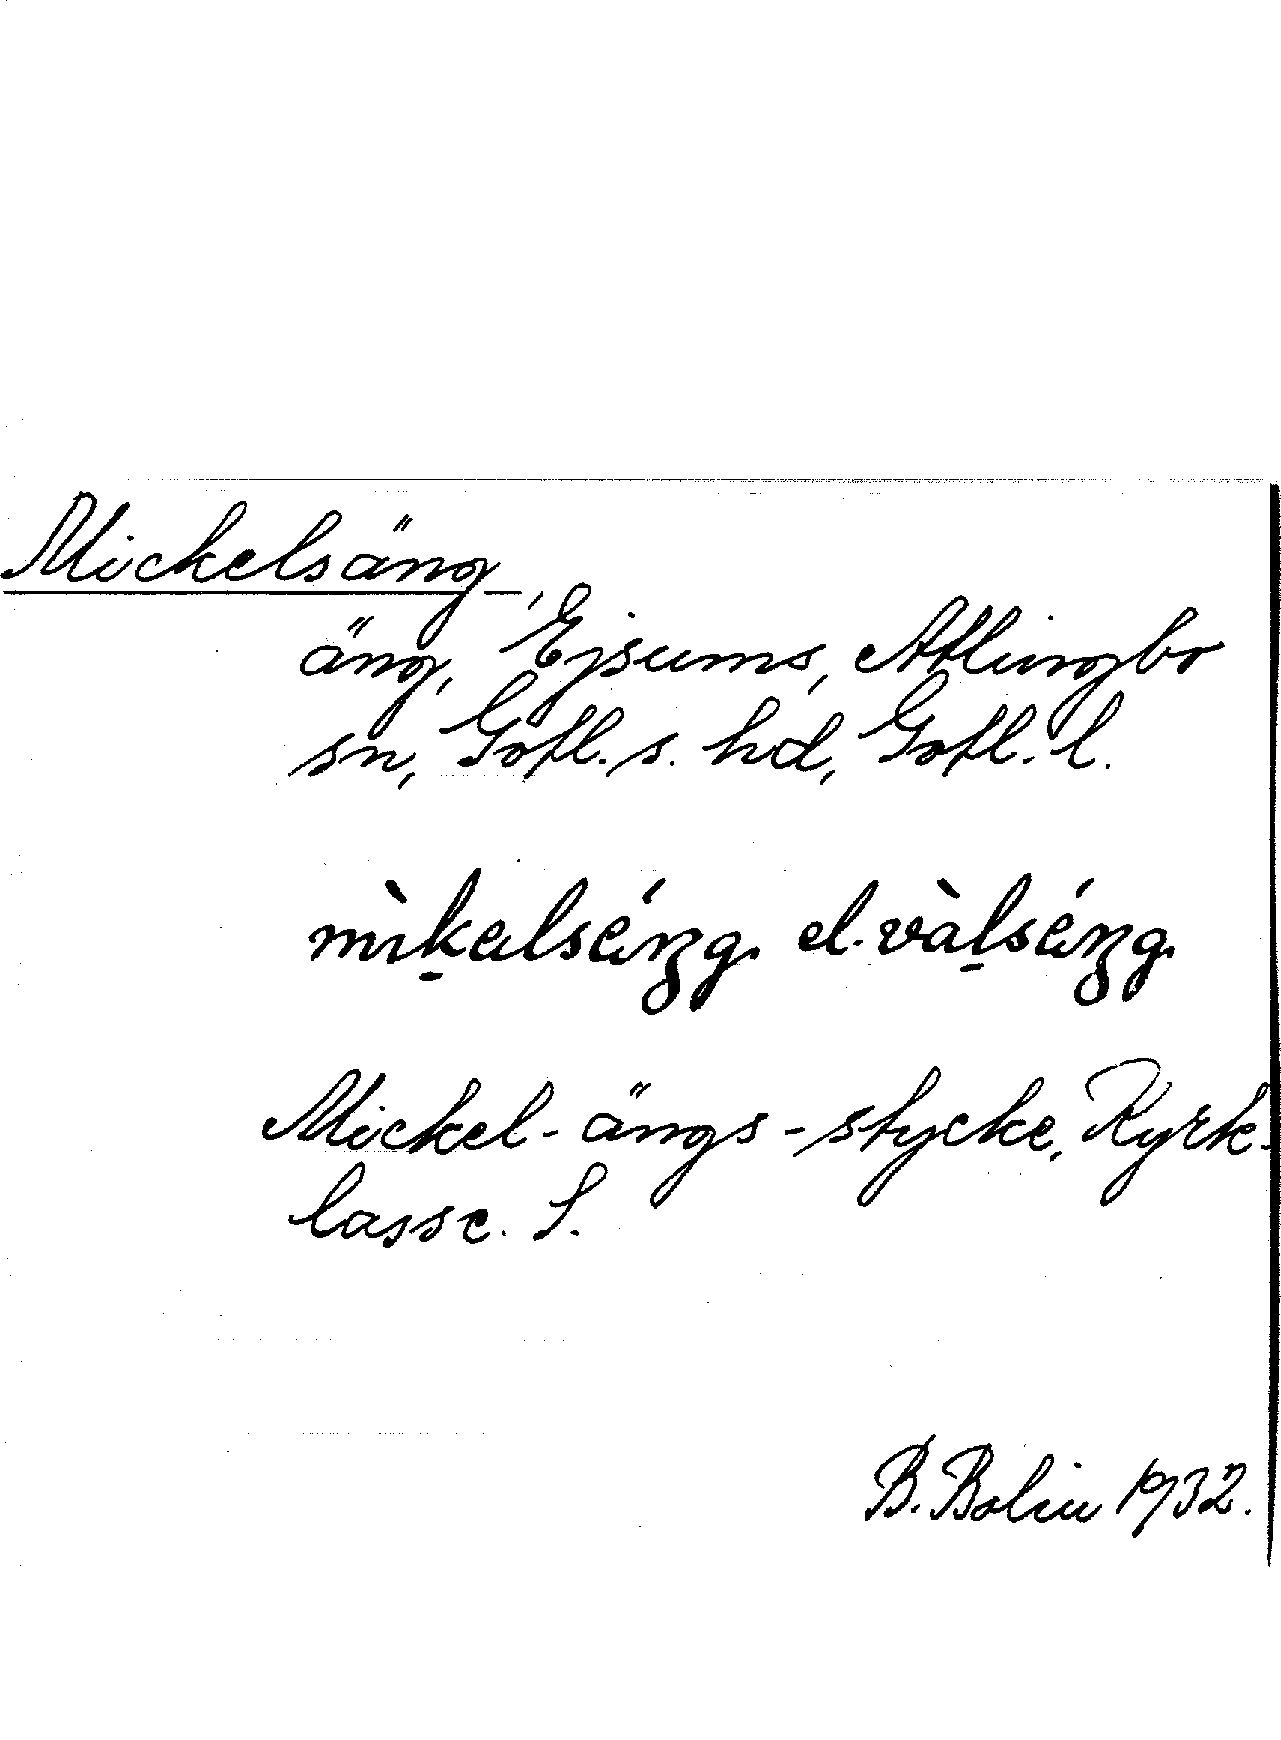 Mickelsäng,
äng, Ejsums, Atlingbo
sn, Gotl. s. hd, Gotl. l.
mìk̠alséŋg. el. vàl̠séŋg.
Mickel-ängs-stycke, Kyrk-
lasse. S.
B. Bolin 1932.